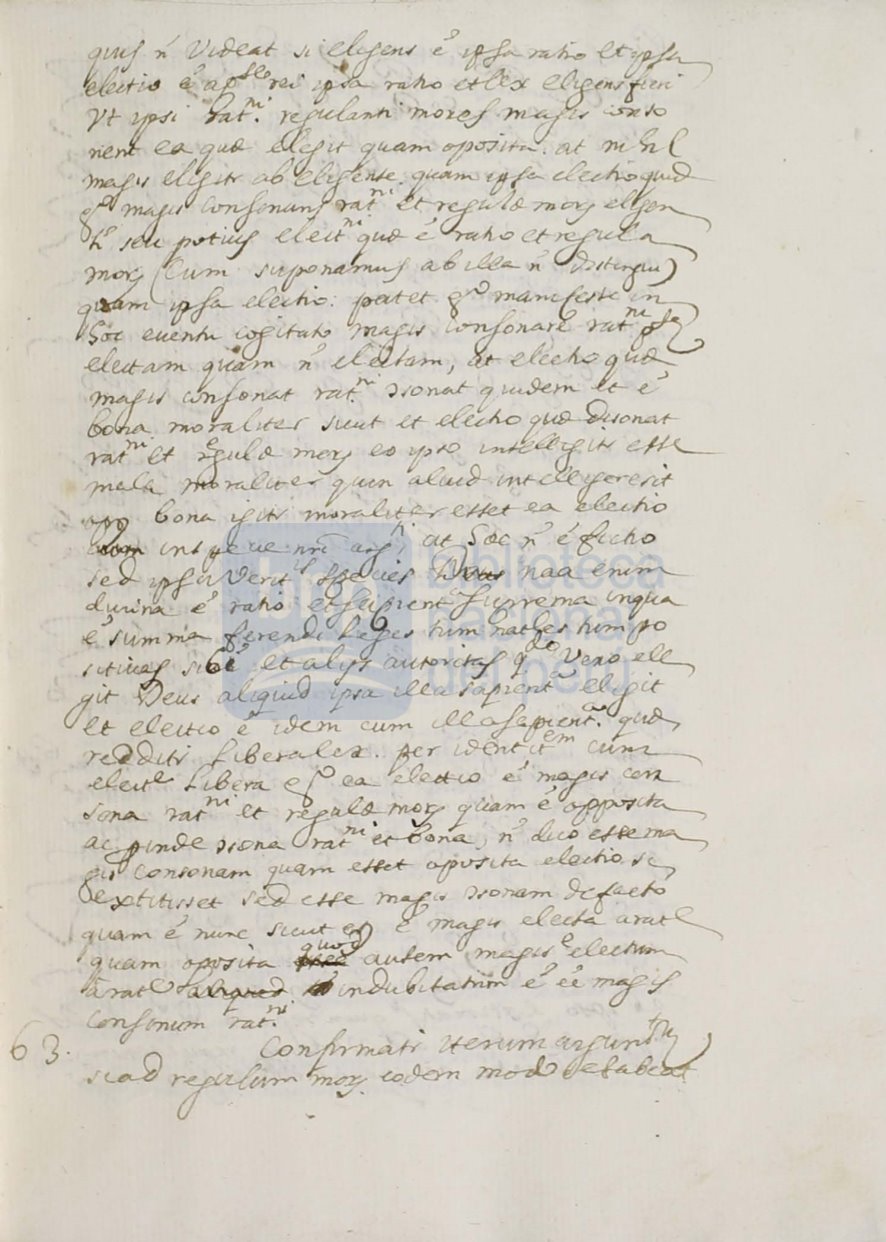 quis n̄ videat si eligens ē ipsa ratio et ipsa
electio ē rei ipsa ratio et lex eligens fieri
Vt ipsi rat.ni regulanti mores magis conso
nent ea quæ elegit quam oposita. at nihil
magis eligitr ab eligente quam ipsa electio quid
magis consonans rat.ni et regulæ mor elgen
seu potius elect.ni quæ ē ratio et regula
mor (cum suponamus ab illa n̄ distingui)
quam ipsa electio: patet manifeste in
hoc eventu cogitato magis consonare rat.ni
electam quam n̄ electam, at electio quæ
magis consonat rat.ni ɔsonat quidem et ē
bona moraliter sicut et electio quæ disonat
rat.ni et regulæ mor eo ipso intelligitr esse
mala moraliter quin aliud intelligere sit
bona igitr moraliter esset ea electio
at hoc n̄ ē fictio
sed ipsa species naa enim
divina ē ratio et sapient.a suprema in qua
ē summa ferendi leges tum nat.les tum po
sitivas sibi et alijs autoritas vero eli
git Deus aliquid ipsa illa sapient.a eligit
et electio ē idem cum illa sapient.a quæ
redditr libera lex. per identit.em cum
elect.e libera ea electio ē magis con
sona rat.ni et regulæ mor quam ē opposita
ac proinde ɔsona rat.ni et bona, n̄ dico esse ma
gis consonam quam esset oposita electio si
extitisset sed esse magis ɔsonam de facto
quam ē nunc sicut ē magis electa a rat.e
quam oposita quod autem magis ē electum
a rat.e indubitatum ē eē magis
consonum rat.ni
63. Confirmatr iterum argum.tu
si ad regulam mor eodem modo se habeat